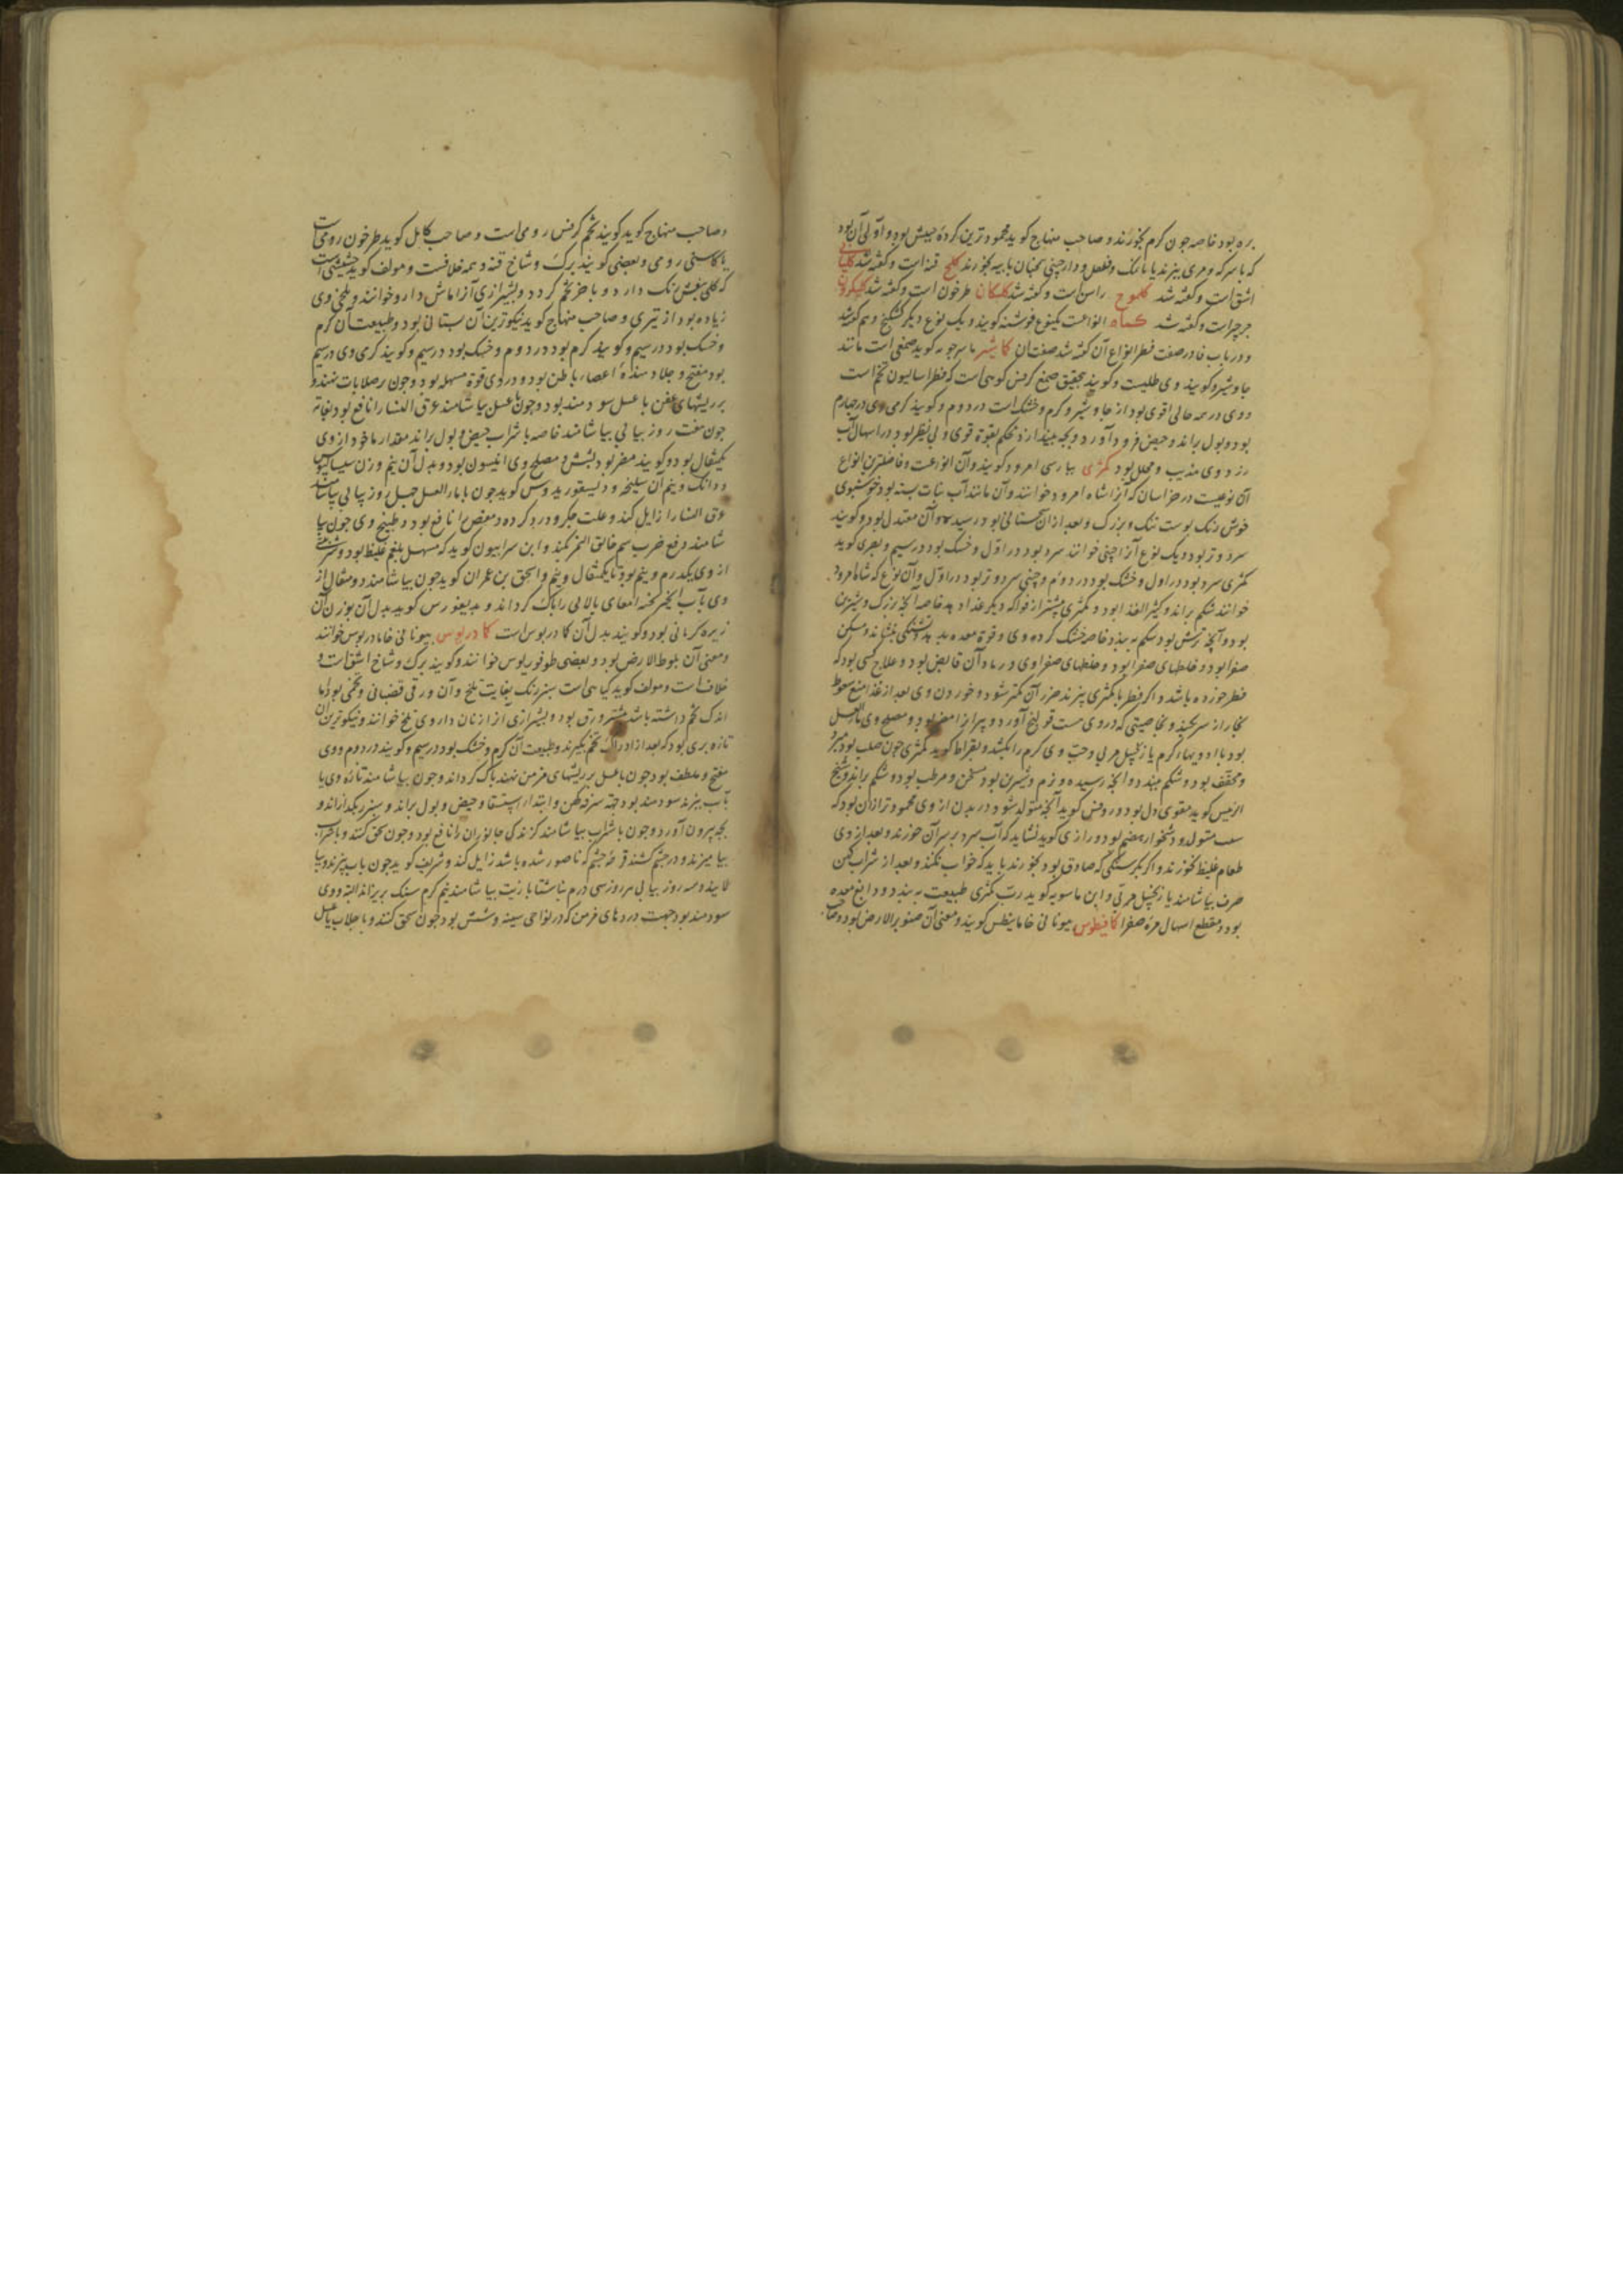 بره بود خاصه چون گرم بخورند و صاحب منهاج کوید محمودترین کرده حبیش بود و اولی آن بود
که با سرکه و مری بپزند یا با نک و فلفل و دارچینی بخورند کلخ قنه است و کفته شد کلبانی
اشق است و کفته شد کلموخ راسن است و کفته شد کلیکان طرخون است و کفته شد
جرجر است و کفته شد کماه انواعست یکنوع فوشنه کویند و یک نوع دیکر کشنخ و هم کفته شد
و در باب فا در صفت فطر انواع آن کفته شد صفت آن کاشیر ماسرجویه کوید صمغی است مانند
جاوشیر و کویند وی طلیست و کویند بتحقیق صمغ کرفس کوهی است که فطراسالیون تخم است
و وی در همه حالی اقوی بود از جاوشیر و کرم و خشک است در دوم و کویند کرمی وی در چهارم
بود و بول براند و حیض فرود آورد و بچه بیندازد بحکم بقوة قوی و بی نظیر بود در اسهال آب
زرد و وی مذیب و محلل بود کمثری بپارسی امرود کویند و آن انواعست و فاضلترین انواع
آن نوعیست در خراسان که آنرا شاه امرود خوانند و آن مانند آب نبات بسته بود خوشبوی
خوش رنک پوست تنک و بزرک و بعد از آن سجستانی بود رسیده و آن معتدل بود و کویند
سرد و تر بود و یک نوع آنرا چینی خوانند سرد بود در اول و خشک بود در سیم و بصری کوید
کمثری سرد بود در اول و خشک بود در دوم و چینی سرد و تر بود در اول و آن نوع که شاه امرود
خوانند شکم براند و کثیر الغذا بود و کمثری بیشتر از فواکه دیکر غذا دهد خاصه آنچه بزرک و شیرین
بود و آنچه ترش بود شکم ببندد خاصه خشک کرده وی و قوة معده بدهد و تشنکی بنشاند و مسکن
صفرا بود و خلطهای صفرا بود و خلطهای صفراوی و رماد آن قابض بود و علاج کسی بود که
فطر خورده باشد و اکر فطر با کمثری پزند ضرر آن کمتر شود و خوردن وی بعد از غذا منع صعود
بخار از سر بکند و بخاصیتی که در وی هست قولنج آورد و پیران را مضر بود و مصلح وی ماء العسل
بود با ادویهاء کرم یا زنجبیل مربی وحب وی کرم را بکشد و بقراط کوید کمثری چون صلب بود مبرد
و مجفف بود و شکم ببندد و آنچه رسیده و نرم و شیرین بود مسخن و مرطب بود و شکم براند و شیخ
الرئیس کوید مقوی دل بود و روفس کوید آنچه متولد شود در بدن از وی محمودتر از آن بود که
سیب متولد و دشخوار هضم بود و رازی کوید نشاید که آب سرد بر سر آن خورند و بعد از وی
طعام غلیظ نخورند و اکر بکرسنکی که صادق بود بخورند باید که خواب نکنند و بعد از شراب کهن
صرف بیاشامند یا زنجبیل مربی و ابن ماسویه کوید رب کمثری طبیعت ببندد و دابغ معده
بود و مقطع اسهال مرة صفرا کمافیطوس بیونانی خامابیطس کویند و معنی آن صنوبر الارض بود
و صاحب منهاج کوید کویند تخم کرفس رومی است و صاحب کامل کوید طرخون رومی است
یا کاسنی رومی و بعضی کویند برک و شاخ قنه و همه خلافست و مولف کوید حشیشی است
که کلی بنفش رنک دارد و با خر تخم کردد و بشیرازی آنرا ماش دارو خوانند و تلخی وی
زیاده بود از تیزی و صاحب منهاج کوید نیکوترین آن بستانی بود و طبیعت آن کرم
و خشک بود در سیم و کویند کرم بود در دوم و خشک بود در سیم و کویند کرمی وی در سیم
بود مفتح و جلا دهنده اعضاء باطن بود و در وی قوة مسهله بود و چون بر صلابات نهند و
بر ریشهای عفن با عسل سودمند بود و چون با عسل بیاشامند عرق النسا را نافع بود بغایة
چون هفت روز پیاپی بیاشامند خاصه با شراب حیض و بول براند مقدار ماخوذ از وی
یکمثقال بود و کویند مضر بود بشش و مصلح وی انیسون بود و بدل آن نیم وزن سیسالیوس
و دانک و نیم آن سلیخه و دیسقوریدوس کوید چون با ماء العسل چهل روز پیاپی بیاشامند
عرق النسا را زایل کند و علت جکر و درد کرده و مغص را نافع بود و طبیخ وی چون بیا
شامند دفع ضرب سم خانق النمر بکند و ابن سرابیون کوید که مسهل بلغم غلیظ بود و شربتی
از وی یکدرم و نیم بود تا یکمثقال و نیم و اسحق بن عمران کوید چون بیاشامند دو مثقال از
وی بآب انجیر پخته امعای بالایی را پاک کرداند و بدیغورس کوید بدل آن بوزن آن
زیره کرمانی بود و کویند بدل آن کمادریوس است کمادریوس بیونانی خامادریوس خوانند
و معنی آن بلوط الارض بود و بعضی طوفوریوس خوانند و کویند برک و شاخ اشق است و
خلاف است و مولف کوید کیاهی است سبز رنک بغایت تلخ و آن ورقی قضبانی و تخمی بود اما
اندک تخم داشته باشد بیشتر ورق بود و بشیرازی آنرا زنان داروی تلخ خوانند و نیکوترین آن
تازه بری بود که بعد از ادراک تخم بکیرند و طبیعت آن کرم و خشک بود در سیم و کویند در دوم و وی
مفتح و ملطف بود چون با عسل بر ریشهای مزمن نهند پاک کرداند و چون بیاشامند تازه وی یا
بآب بپزند سودمند بود جهة سرفه کهن و ابتداء استسقا و حیض و بول براند و سبرز بکدازاند و
بچه بیرون آورد و چون با شراب بیاشامند کزندکی جانوران را نافع بود و چون سحق کنند و بشراب
بیامیزند و در چشم کشند قرحه چشم که ناصور شده باشد زایل کند و شریف کوید چون بآب بپزند و بپا
لایند و سه روز پیاپی هر روز سی درم بناشتا با زیت بیاشامند نیم کرم سنک بریزاند البته و وی
سودمند بود جهت دردهای مزمن که در نواحی سینه و شش بود چون سحق کنند و با جلاب یا عسل